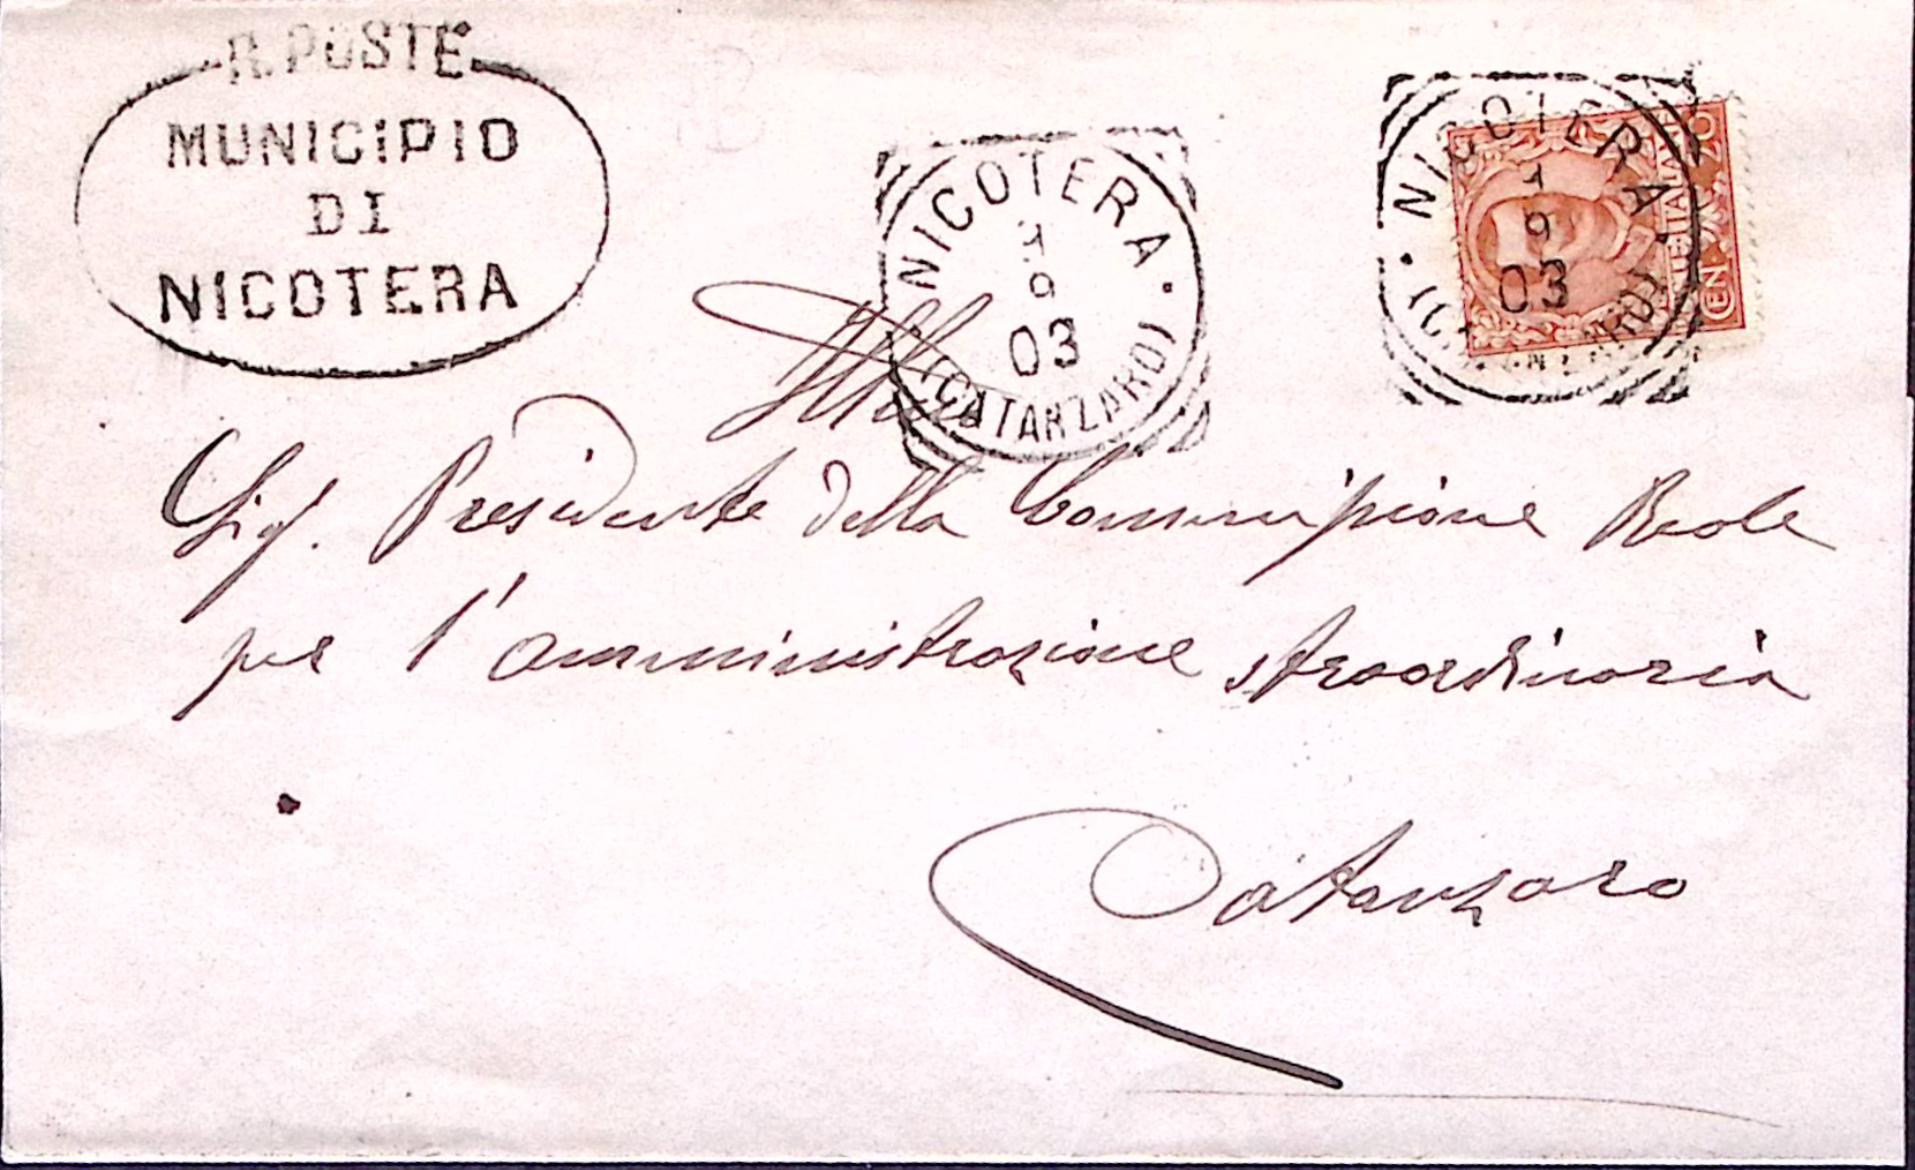 R. POSTE
MUNICIPIO
DI
NICOTERA
NICOTERA
1
9
03
(CATANZARO)
NICOTERA
1
9
03
CEN. 20
Ill
Sig. Presidente della Commissione Reale
per l'amministrazione straordinaria
Catanzaro